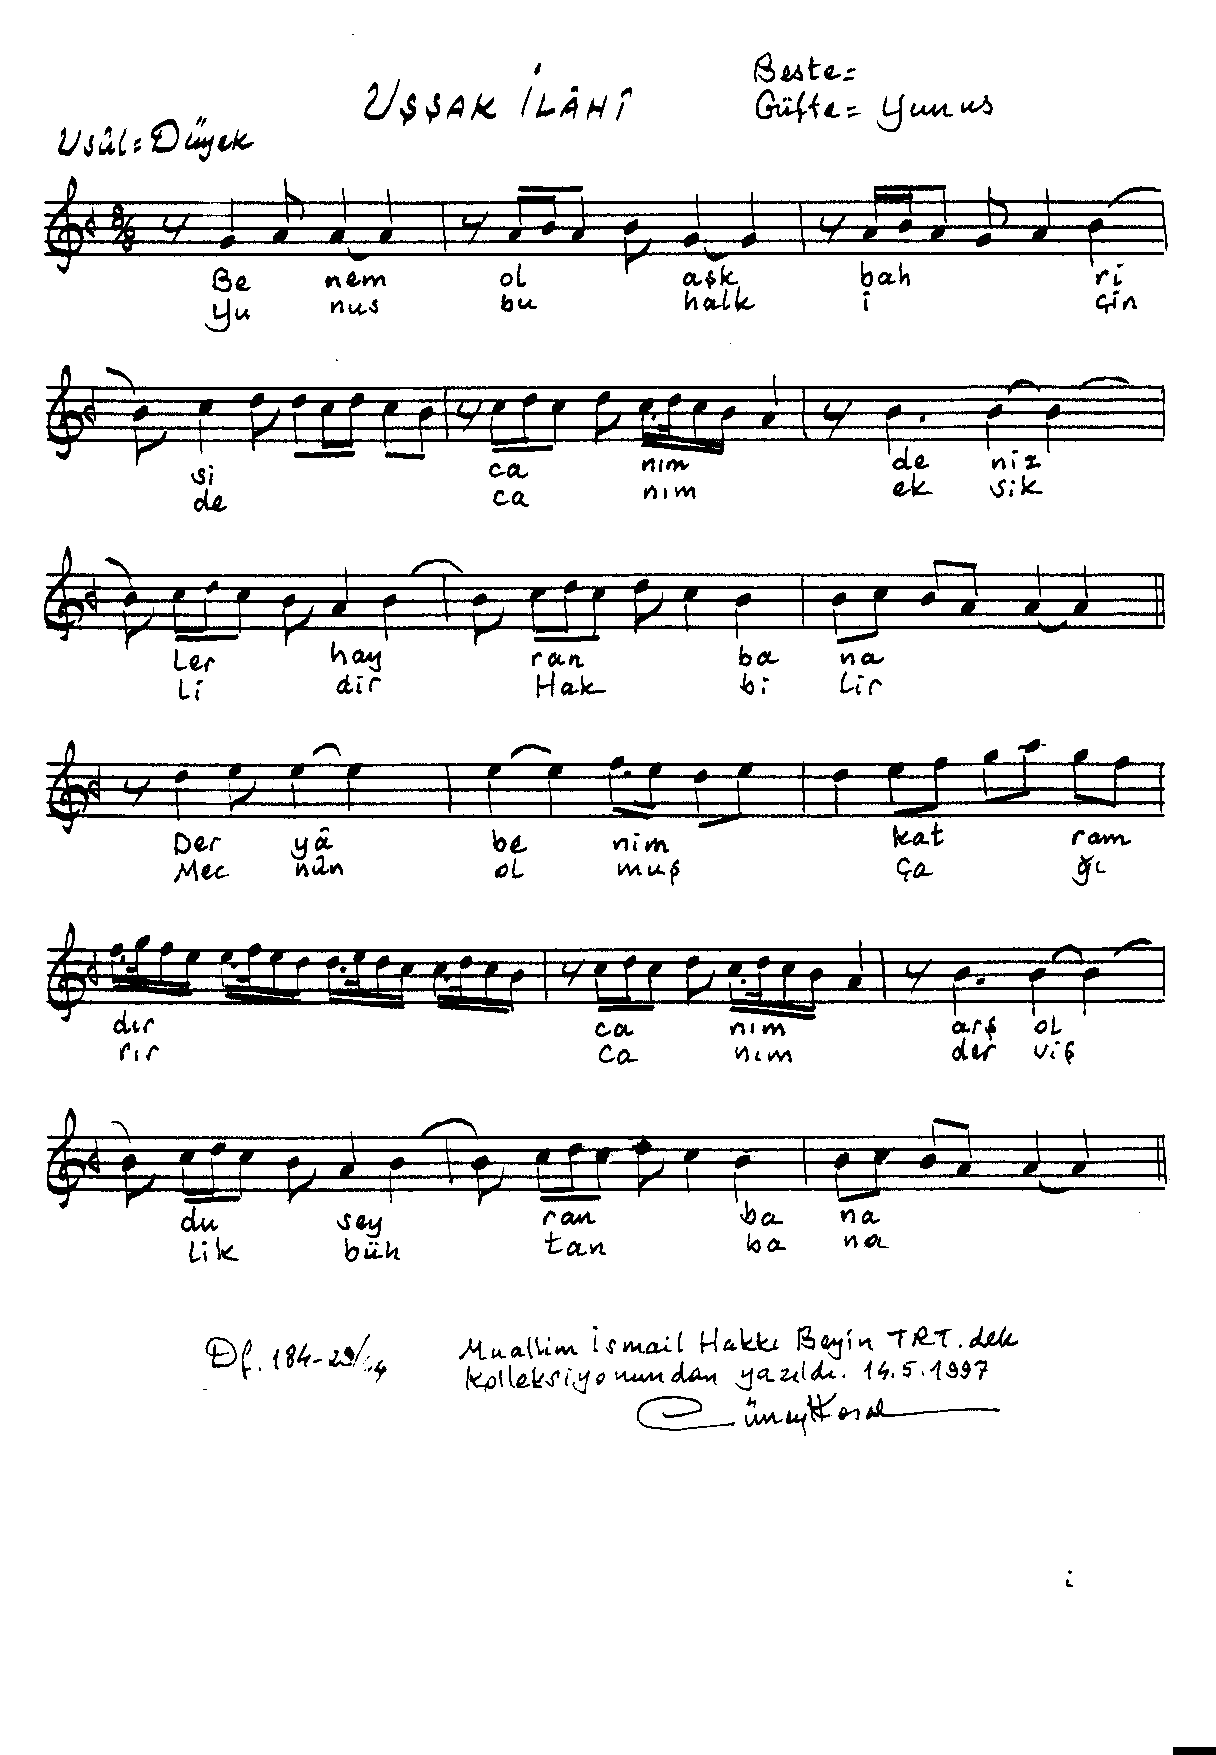 Beste=
UŞŞAK İLÂHÎ
Güfte= Yunus
Usûl= Düyek
8/8
Be nem ol aşk bah ri
Yu nus bu halk i çin
si ca nım de niz
de ca nım ek sik
Ler hay ran ba na
Li dir Hak bi lir
Der yâ be nim kat ram
Mec nûn ol muş ça ğı
dır ca nım arş ol
rır ca nım der viş
du sey ran ba na
lik büh tan ba na
Df. 184-29/
Muallim İsmail Hakkı Beyin TRT. dek
Kolleksiyonundan yazıldı. 14.5.1997
i